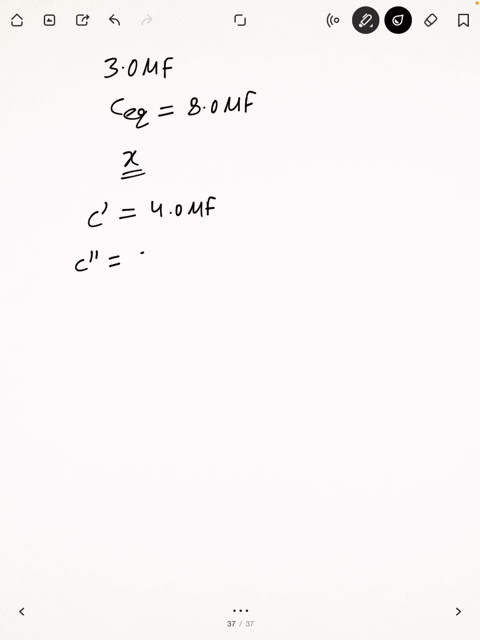 3.0 μF
Ceq = 8.0 μF
x
C' = 4.0 μF
C'' =
37 / 37